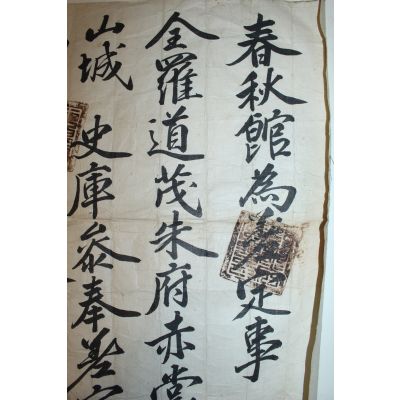 春秋館為差定事
全羅道茂朱府赤裳
山城 史庫參奉差定